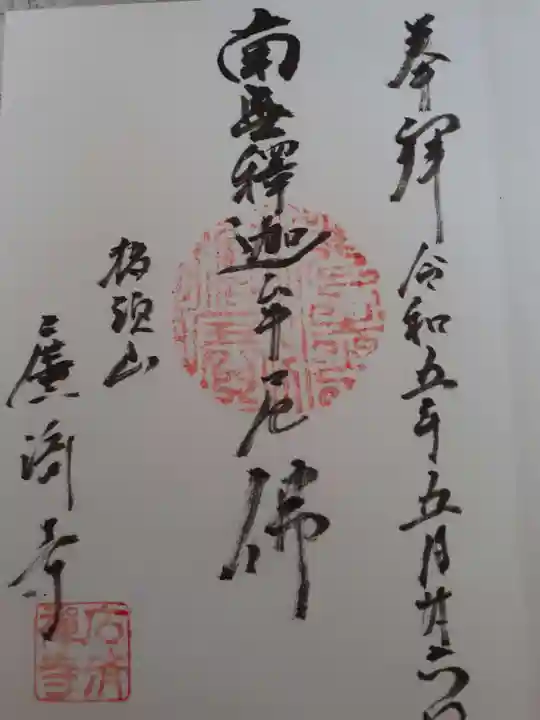 奉拝 令和五年五月廿六日
南無釋迦牟尼佛
頭山
廣濟寺
広済禅寺